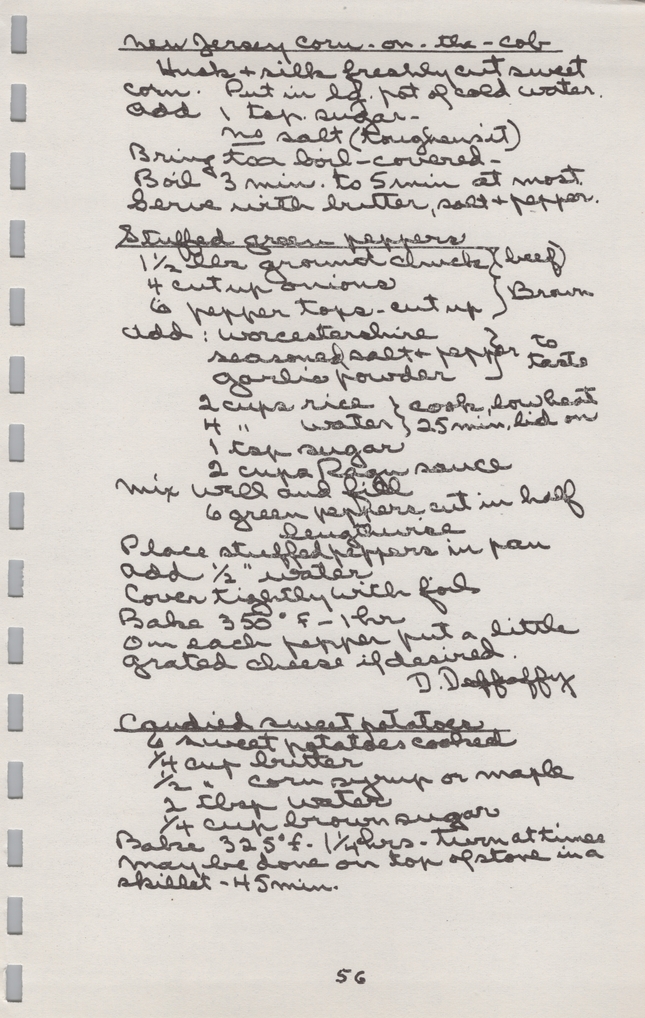 New Jersey corn-on-the-cob
Husk + silk freshly cut sweet
corn. Put in lg. pot of cold water.
add 1 tsp. sugar-
no salt (toughens it)
Bring to a boil-covered-
Boil 3 min. to 5 min at most.
Serve with butter, salt + pepper.
Stuffed green peppers
1 1/2 lbs ground chuck (beef)
4 cut up onions } Brown
6 pepper tops-cut up
add: worcestershire } to
seasoned salt + pepper taste
garlic powder
2 cups rice } cook, low heat
4 " water } 25 min, lid on
1 tsp sugar
2 cups Ragu sauce
Mix well and fill
6 green peppers cut in half
lengthwise
Place stuffed peppers in pan
add 1/2" water
Cover tightly with foil
Bake 350° F - 1 hr
On each pepper put a little
grated cheese if desired.
D. Deffaffy
Candied sweet potatoes
6 sweet potatoes cooked
1/4 cup butter
1/2 " corn syrup or maple
2 tbsp water
1/4 cup brown sugar
Bake 325° F - 1 1/4 hrs - turn at times
may be done on top of stove in a
skillet - 45 min.
56